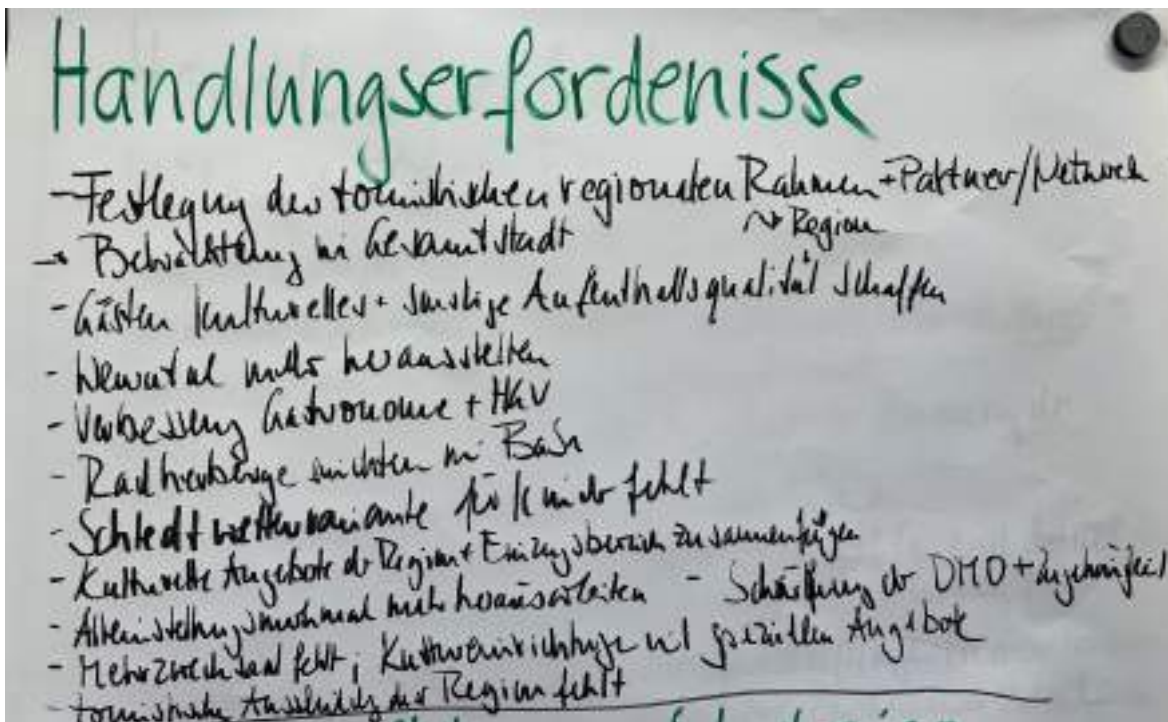 Handlungserfordenisse
- Festlegung des touristischen regionalen Rahmen + Partner/Netzwerk
→ Region
→ in Gesamtstadt
- Gästen kulturelles + sonstige Aufenthaltsqualität schaffen
- mehr herausstellen
- Verbesserung Gastronomie + HGV
- Radherberge in
- Schlechtwettervariante für Kinder fehlt
- Kulturelle Angebote der Region + Einzugsbereich zusammenfügen
- Alleinstellungsmerkmal mehr herausarbeiten - Schärfung der DMO +
- Mehrzwecksaal fehlt; Kultureinrichtungen mit speziellen Angebote
- touristische der Region fehlt